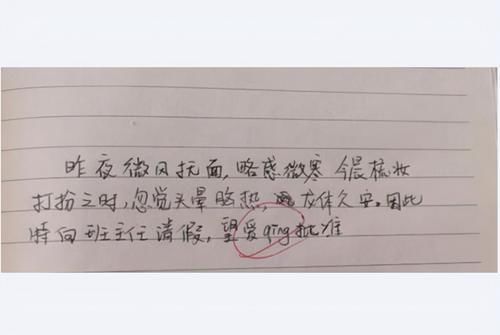 昨夜微风抚面,略感微寒 今晨梳妆
打扮之时,忽觉头晕脑热,龙体欠安。因此
特向班主任请假,望爱qing批准